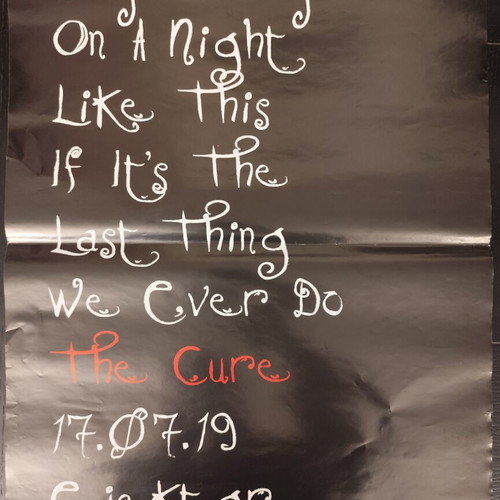 On A Night
Like This
If It's The
Last Thing
We Ever Do
The Cure
17.Ø7.19